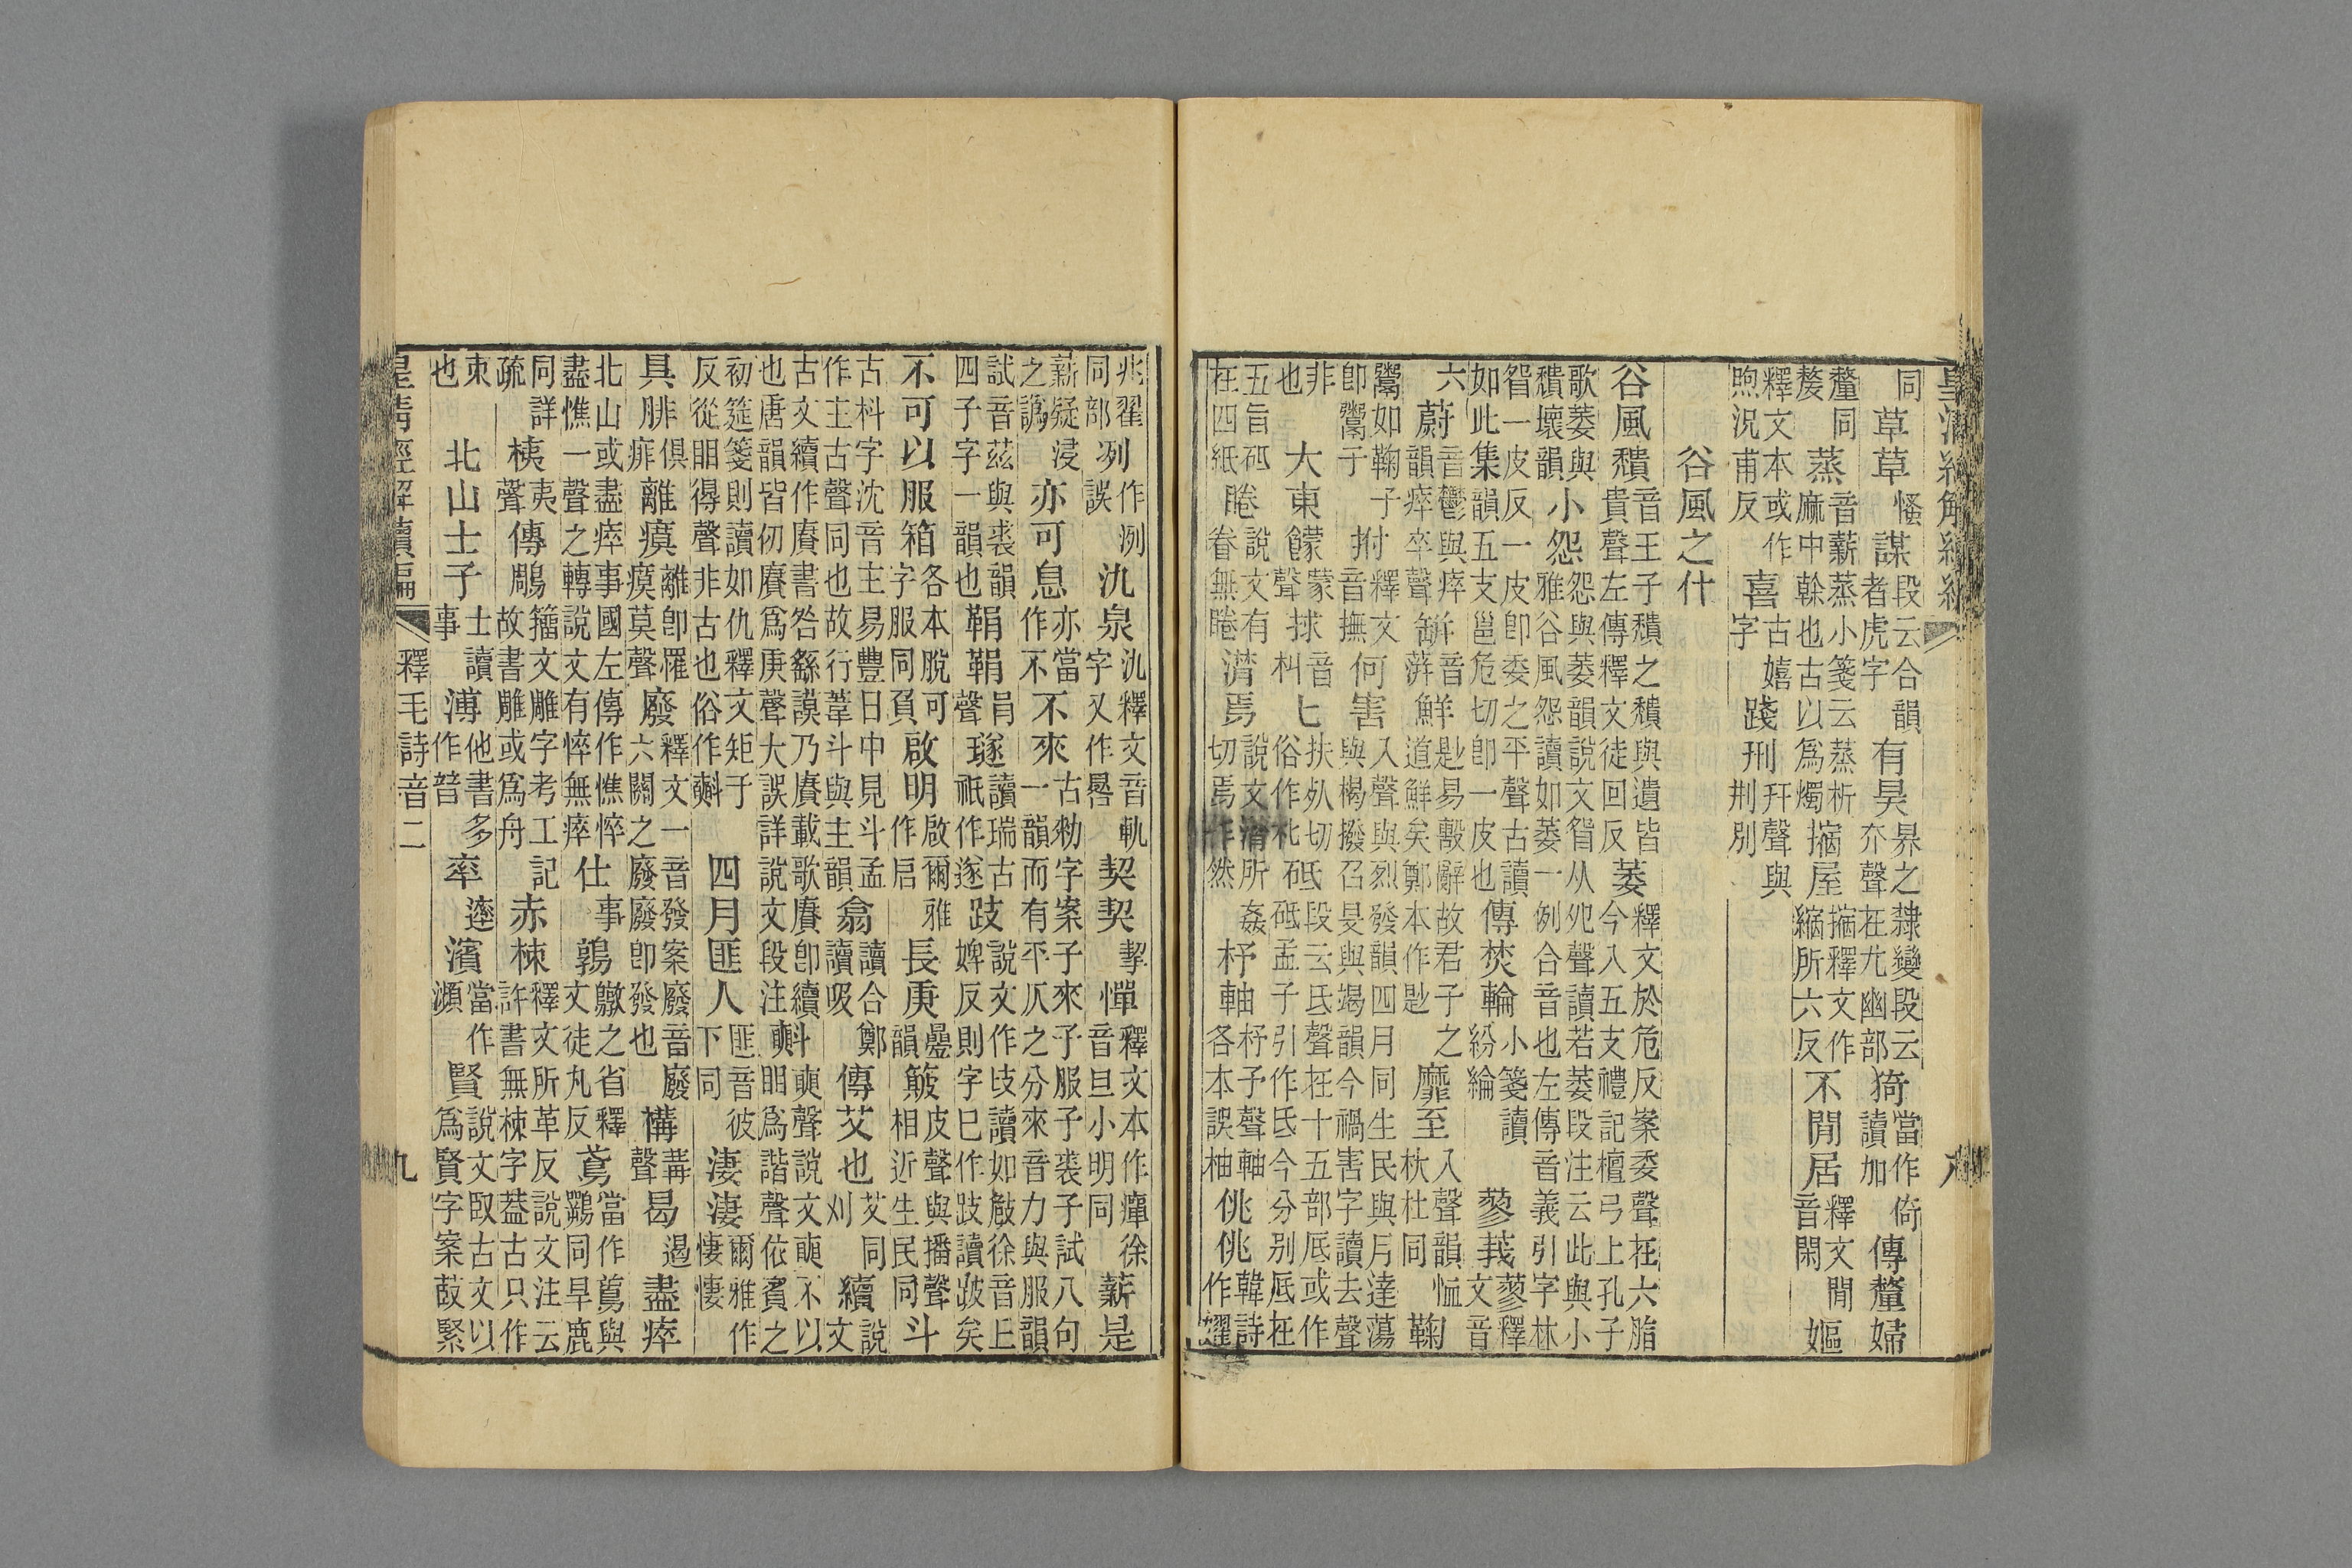 皇清經解續編 八
同草草慅謀段云合韻者虎字有昊昦之隸變段云夰聲在尤幽部猗當作倚讀加傳釐婦
釐同嫠蒸音薪蒸小箋云蒸析麻中榦也古以爲燭摍屋摍釋文作縮所六反不閒居釋文閒音閑嫗
釋文本或作煦況甫反喜古嬉字踐刑幵聲與荆別
谷風之什
谷風穨音王子穨之穨與遺皆貴聲左傳釋文徒回反萎釋文於危反案委聲在六脂今入五支禮記檀弓上孔子
歌萎與穨壞韻小怨怨與萎韻說文眢从夗聲讀若萎段注云此與小雅谷風怨讀如萎一例合音也左傳音義引字林
眢一皮反一皮卽委之平聲古讀如此集韻五支邕危切卽一皮也傳焚輪小箋讀紛綸蓼莪蓼釋文音
六蔚音鬱與瘁韻瘁卒聲鮮匙易毄辭故君子之道鮮矣鄭本作匙靡至入聲韻恤杕杜同鞠
鬻如鞠子卽鬻子拊釋文音撫何害入聲與烈發韻四月同生民與月達蕩與楬撥召旻與竭韻今禍害字讀去聲
非也大東饛蒙聲捄音糾匕切俗作朼砥段云氐聲在十五部厎或作砥孟子引作厎今分別厎在
五旨砥在四紙睠說文有眷無睠潸焉說文潸所姦切焉作然杼軸杼予聲軸各本誤柚佻佻韓詩作嬥
兆翟同部冽作洌誤氿泉氿釋文音軌字又作晷契契挈憚釋文本作癉徐音旦小明同薪是
薪疑之譌浸亦可息亦當作不不來古勑字案子來子服子裘子試八句一韻而有平仄之分來音力與服韻
試音茲與裘韻四子字一韻也鞙鞙肙聲璲讀瑞古祇作遂跂說文作讀如徐音上婢反則字已作跂讀跛矣
不可以服箱各本脫可字服同負啟明啟爾雅作启長庚韻簸皮聲與播聲相近生民同斗
古枓字沈音主易豐日中見斗孟作主古聲同也故行葦斗與主韻翕讀合鄭讀吸傳艾也艾同刈續說文
古文續作賡書咎繇謨乃賡載歌賡卽續也唐韻皆仞賡爲庚聲大誤詳說文段注斗聲說文不以䀠爲諧聲依賓之
初筵箋則讀如仇釋文矩于反從䀠得聲非古也俗作四月匪人匪音彼下同淒淒爾雅作悽悽
具腓俱痱離瘼離卽罹瘼莫聲廢釋文一音發案廢音廢六關之廢廢卽發也構冓聲曷遏盡瘁
北山或盡瘁事國左傳作憔悴盡憔一聲之轉說文有悴無瘁仕事鶉之省釋文徒丸反鳶當作與同旱鹿
同詳疏桋夷聲傳鵰籀文雕字考工記故書雕或爲舟赤栜釋文所革反說文注云許書無栜字葢古只作
朿也北山士子士讀事溥他書多作普率濱當作瀕賢說文臤古文以爲賢字案菣緊
皇清經解續編 釋毛詩音二 九